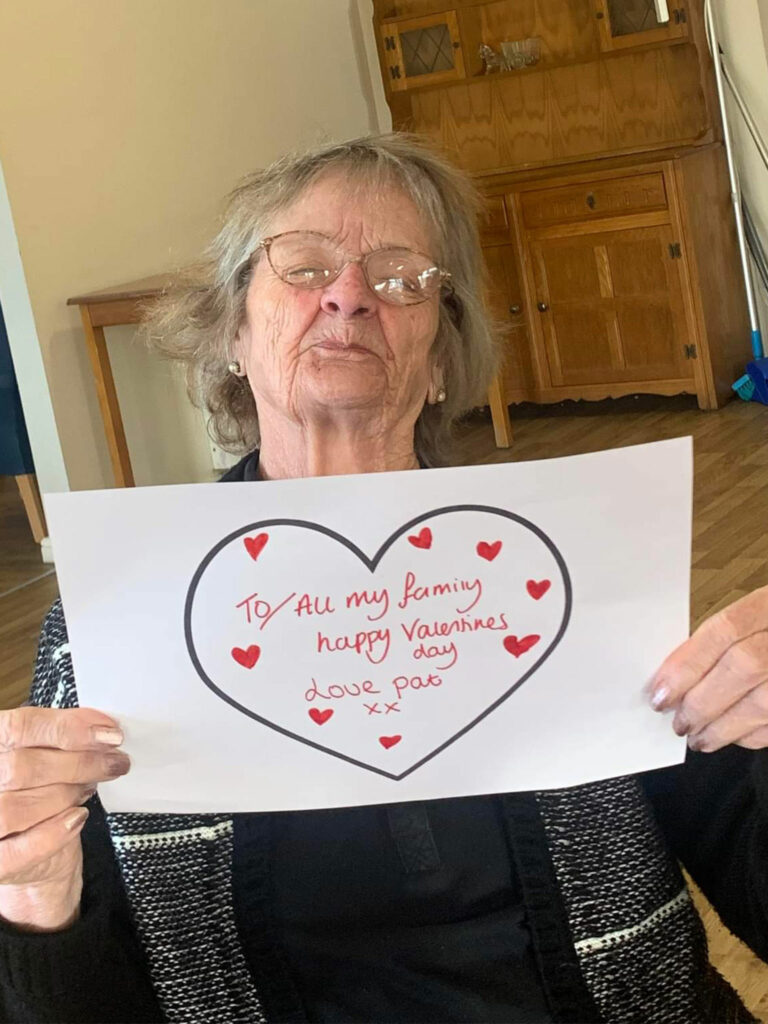 TO/ All my family
happy Valentines
day
Love pat
xx